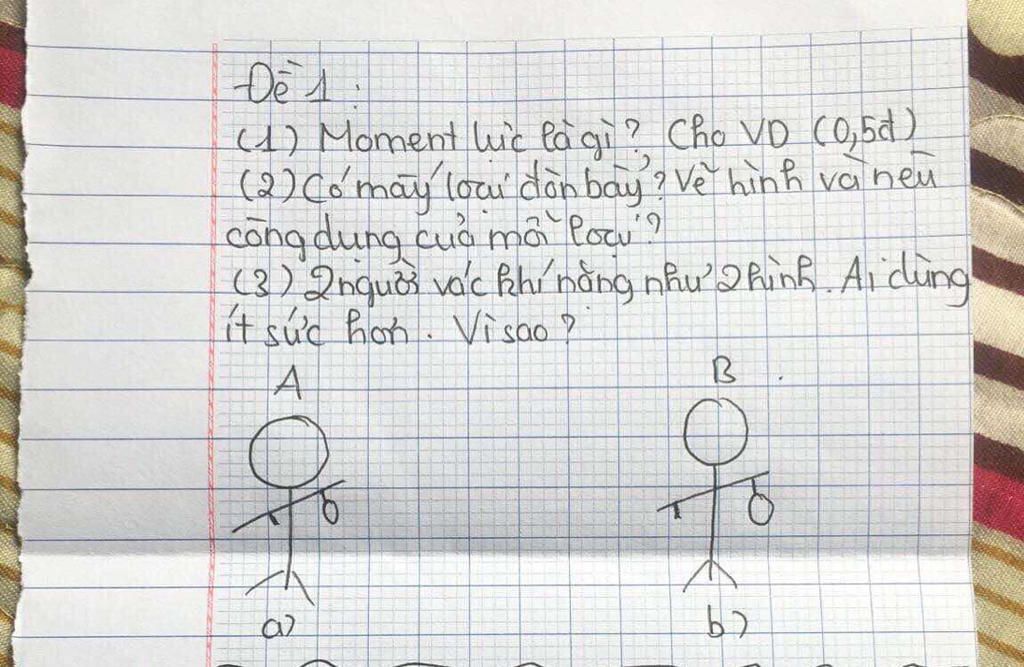 Đề 1:
(1) Moment lực là gì? Cho VD (0,5đ)
(2) Có mấy loại đòn bẩy? Vẽ hình và nêu
công dụng của mỗi loại?
(3) 2 người vác khí nặng như 2 hình. Ai dùng
ít sức hơn. Vì sao?
A
B
a)
b)